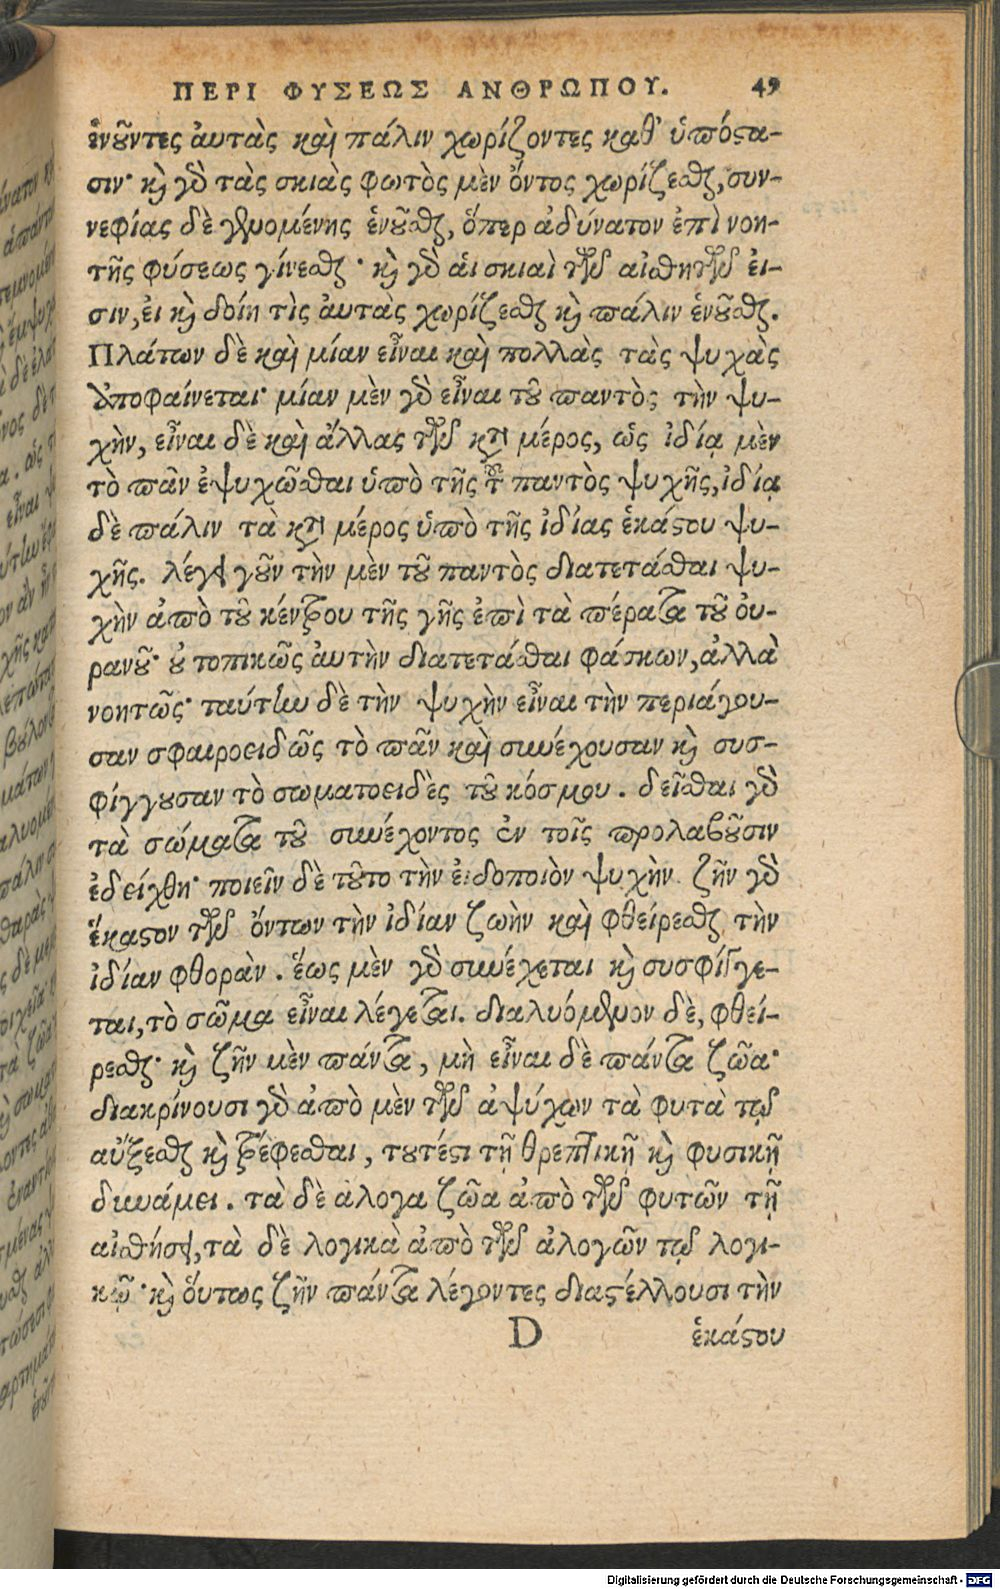 ΠΕΡΙ ΦΥΣΕΩΣ ΑΝΘΡΩΠΟΥ. 49
ἑνοῦντες ἀυτὰς καὶ πάλιν χωρίζοντες καθ' ὑπόςα-
σιν· κὶ γὸ τὰς σκιὰς φωτὸς μὲν ὄντος χωρίζεσθαι, συν-
νεφίας δὲ γενομένης ἑνοῦσθαι, ὅπερ ἀδύνατον ἐπὶ νοη-
τῆς φύσεως γίνεσθαι· καὶ γὸ ἁι σκιαὶ τῶν αἰσθητῶν ἐι-
σιν, ἐι καὶ δοίη τὶς ἀυτὰς χωρίζεσθαι καὶ πάλιν ἑνοῦσθαι.
Πλάτων δὲ καὶ μίαν εἶναι καὶ πολλὰς τὰς ψυχὰς
ἀποφαίνεται· μίαν μὲν γὸ εἶναι τοῦ παντὸς τὴν ψυ-
χὴν, εἶναι δὲ καὶ ἄλλας τῶν κατὰ μέρος, ὡς ἰδίᾳ μὲν
τὸ πᾶν ἐψυχῶσθαι ὑπὸ τῆς τοῦ παντὸς ψυχῆς, ἰδίᾳ
δὲ πάλιν τὰ κατὰ μέρος ὑπὸ τῆς ἰδίας ἑκάςου ψυ-
χῆς. λέγει γοῦν τὴν μὲν τοῦ παντὸς διατετάσθαι ψυ-
χὴν ἀπὸ τοῦ κέντρου τῆς γῆς ἐπὶ τὰ πέρατα τοῦ ὀυ-
ρανοῦ· ὀυ τοπικῶς ἀυτὴν διατετάσθαι φάσκων, ἀλλὰ
νοητῶς· ταύτην δὲ τὴν ψυχὴν εἶναι τὴν περιάγου-
σαν σφαιροειδῶς τὸ πᾶν καὶ συνέχουσαν καὶ συσ-
φίγγουσαν τὸ σωματοειδὲς τοῦ κόσμου. δεῖσθαι γὸ
τὰ σώματα τοῦ συνέχοντος ἐν τοῖς προλαβοῦσιν
ἐδείχθη· ποιεῖν δὲ τοῦτο τὴν ἐιδοποιὸν ψυχὴν ζῆν γὸ
ἕκαςον τῶν ὄντων τὴν ἰδίαν ζωὴν καὶ φθείρεσθαι τὴν
ἰδίαν φθορὰν. ἕως μὲν γὸ συνέχεται καὶ συσφίγγε-
ται, τὸ σῶμα εἶναι λέγεται. διαλυόμενον δὲ, φθεί-
ρεσθαι· καὶ ζῆν μὲν πάντα, μὴ εἶναι δὲ πάντα ζῶα·
διακρίνουσι γὸ ἀπὸ μὲν τῶν ἀψύχων τὰ φυτὰ τῷ
αὔξεσθαι καὶ τρέφεσθαι, τουτέςι τῇ θρεπτικῇ καὶ φυσικῇ
δυνάμει. τὰ δὲ ἄλογα ζῶα ἀπὸ τῶν φυτῶν τῇ
αἰσθήσει, τὰ δὲ λογικὰ ἀπὸ τῶν ἀλογῶν τῷ λογι-
κῷ· καὶ ὅυτως ζῆν πάντα λέγοντες διαςέλλουσι τὴν
D ἑκάςου
Digitalisierung gefördert durch die Deutsche Forschungsgemeinschaft - DFG